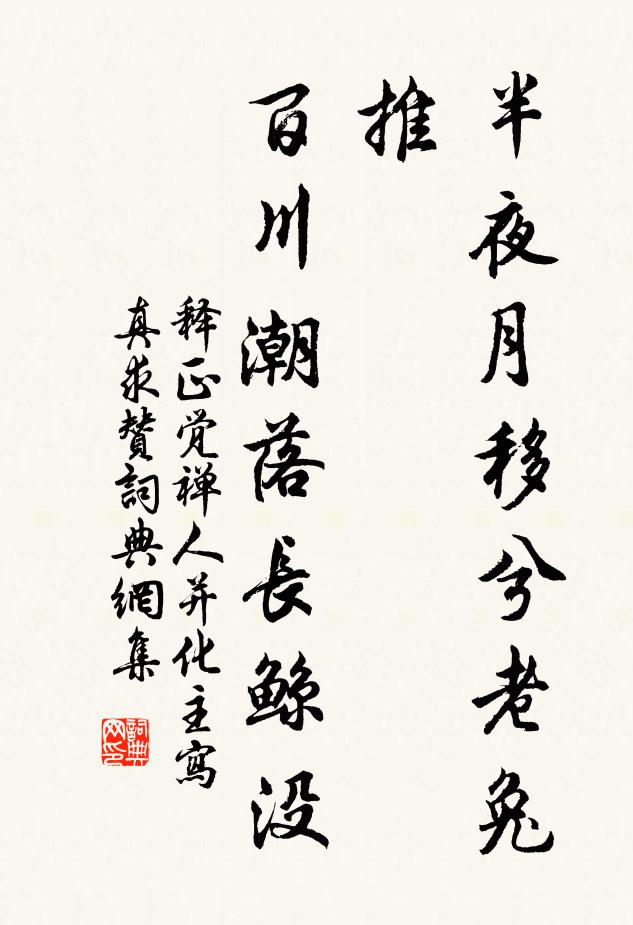 半夜月移兮老兔
推
百川潮落長鲸没
释正觉禅人并化主寫
真求赞詞典網集
詞典网印